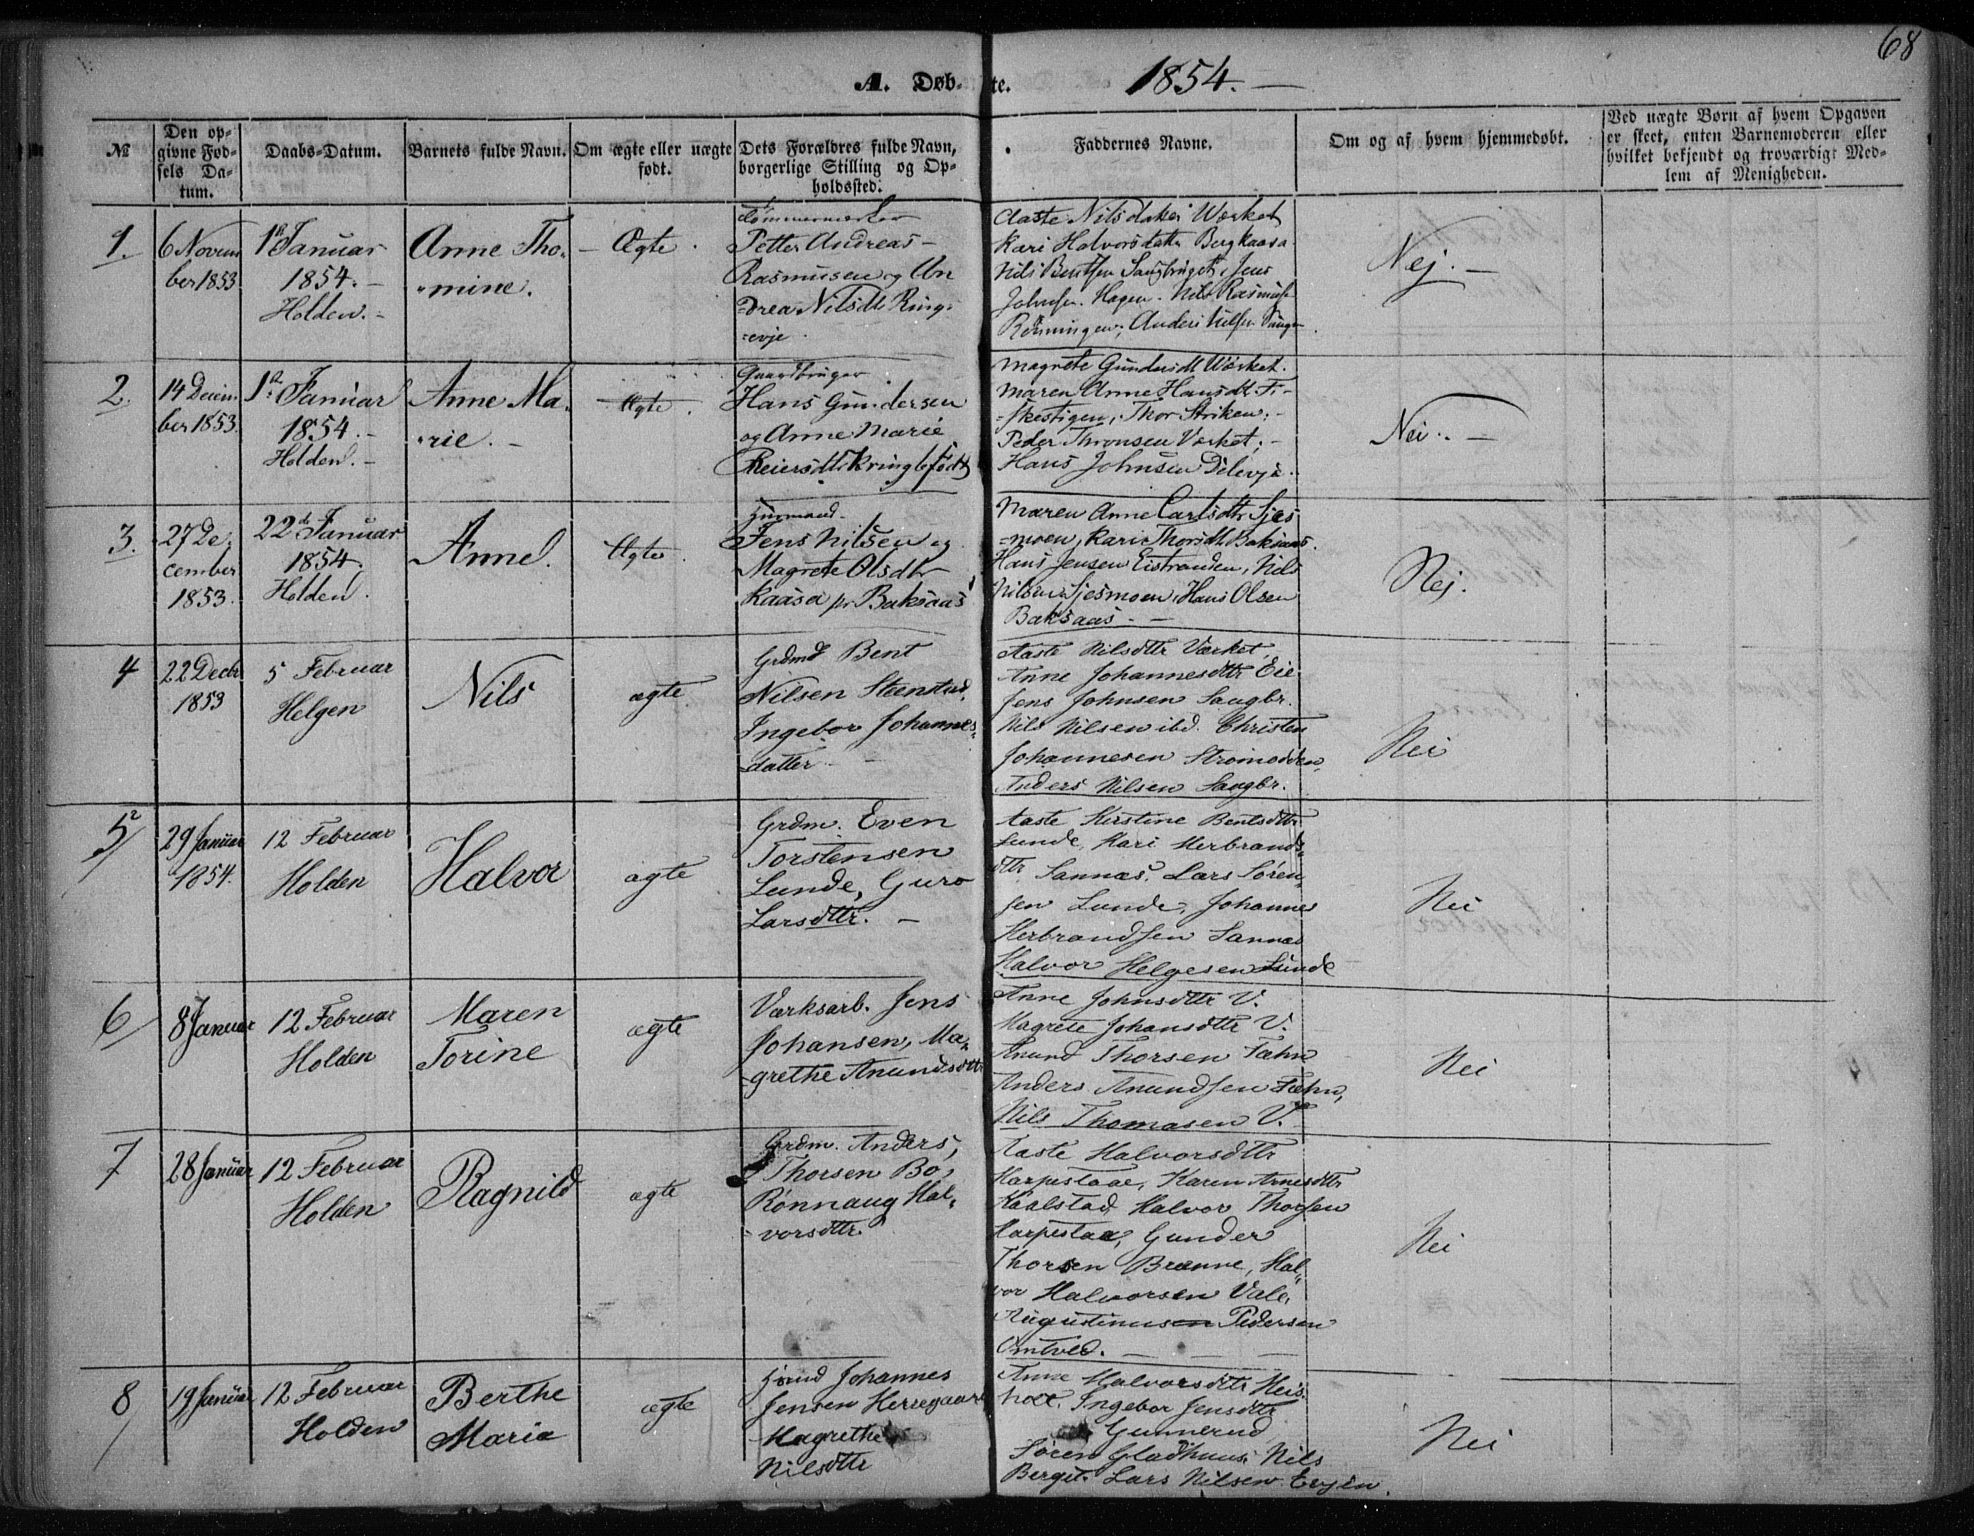 68
A. Døb- te. 1854. —
№
Den op-
givne Fød-
sels Da-
tum.
Daabs-Datum.
Barnets fulde Navn.
Om ægte eller uægte
født.
Dets Forældres fulde Navn,
borgerlige Stilling og Op-
holdssted.
Faddernes Navne.
Om og af hvem hjemmedøbt.
Ved uægte Børn af hvem Opgaven
er skeet, enten Barnemoderen eller
hvilket bekjendt og troværdigt Med-
lem af Menigheden.
1.
6 Novem
ber 1853
1st Januar
1854. -
Holden. -
Anne Tho-
"mine.
Ægte
Petter Andreas -
Rasmusen og An
drea Nilsdtr Ring-
evje
Aaste Nilsdatter Værket
Kari Halvorsdatter Bergkaasa
Nils Bentsen Saugbruget, Jens
Johnsen Hagen. Nils Rasmus
Rønningen, Anders Nilsen
Nej. —
2.
14 Decem
ber 1853.
1st Januar
1854. -
Holden. -
Anne Ma-
"rie. -
Ægte
Gaardbruger
Hans Gundersen
og Anne Marie
Reiersdtr Kringlefødt
Magrete Gundersdt Værket.
Maren Anne Hansdtr Fi-
skestigen, Thor Striken, -
Peder Thronsen Værket, -
Hans Johnsen Dilevje.
Nei. —
3.
27 De-
cember
1853.
22de Januar
1854.
Holden.
Anne.
Ægte
Huusmand
Jens Nilsen og
Magrete Olsdtr
Kaasa pr Baksaas
Maren Anne Carlsdtr Sjes
moen, Kari Thorsdtr Baksaas.
Hans Jensen Eistranden, Nils
Nilsen Sjesmoen, Hans Olsen
Baksaas. —
Nej.
4
22 Decbr
1853
5 Februar
Helgen
Nils
ægte
Grdmd Bent
Nilsen Steenstad,
Ingebor Johannes-
datter
Aaste Nilsdttr Værket,
Anne Johannesdttr Eie
Jens Johnsen Saugbr.
Nils Nilsen ibd. Christen
Johannesen Strømodden,
Anders Nilsen Saugbr.
Nei
5
29 Januar
1854.
12 Februar
Holden
Halvor
ægte
Grdm. Even
Torstensen
Lunde, Guro
Larsdttr. —
Aaste Kirstine Bentsdttr
Lunde, Kari Herbrands-
dttr Sannæs. Lars Søren-
sen Lunde, Johannes
Herbrandsen Sannæs
Halvor Helgesen Lunde
Nei
6
8 Januar
12 Februar
Holden
Maren
Torine
ægte
Værksarb. Jens
Johansen, Ma-
grethe Anundsdttr
Anne Johnsdttr V.
Magrete Johansdttr V.
Anund Thorsen Fæhn
Anders Anundsen Fæhn,
Nils Thomasen V.
Nei
7
28 Januar
12 Februar
Holden
Ragnild
ægte
Grdm. Anders
Thorsen Bø,
Rønnaug Hal-
vorsdttr.
Aaste Halvorsdttr
Harpestaae, Karen Arnesdttr
Kaalstad Halvor Thorsen
Harpestaa, Gunder
Thorsen Brenne, Hal-
vor Halvorsen Vale,
Augustinusen Pedersen
Omtved. —
Nei
8
19 Januar
12 Februar
Holden
Berthe
Maria
ægte
Huusmd Johannes
Jensen Herregaard
Magrethe
Nilsdttr
Anne Halvorsdttr Heis
holt. Ingebor Jensdttr
Gunnerud
Søren Gladhuus. Nils
Berget. Lars Nilsen Evjen.
Nei